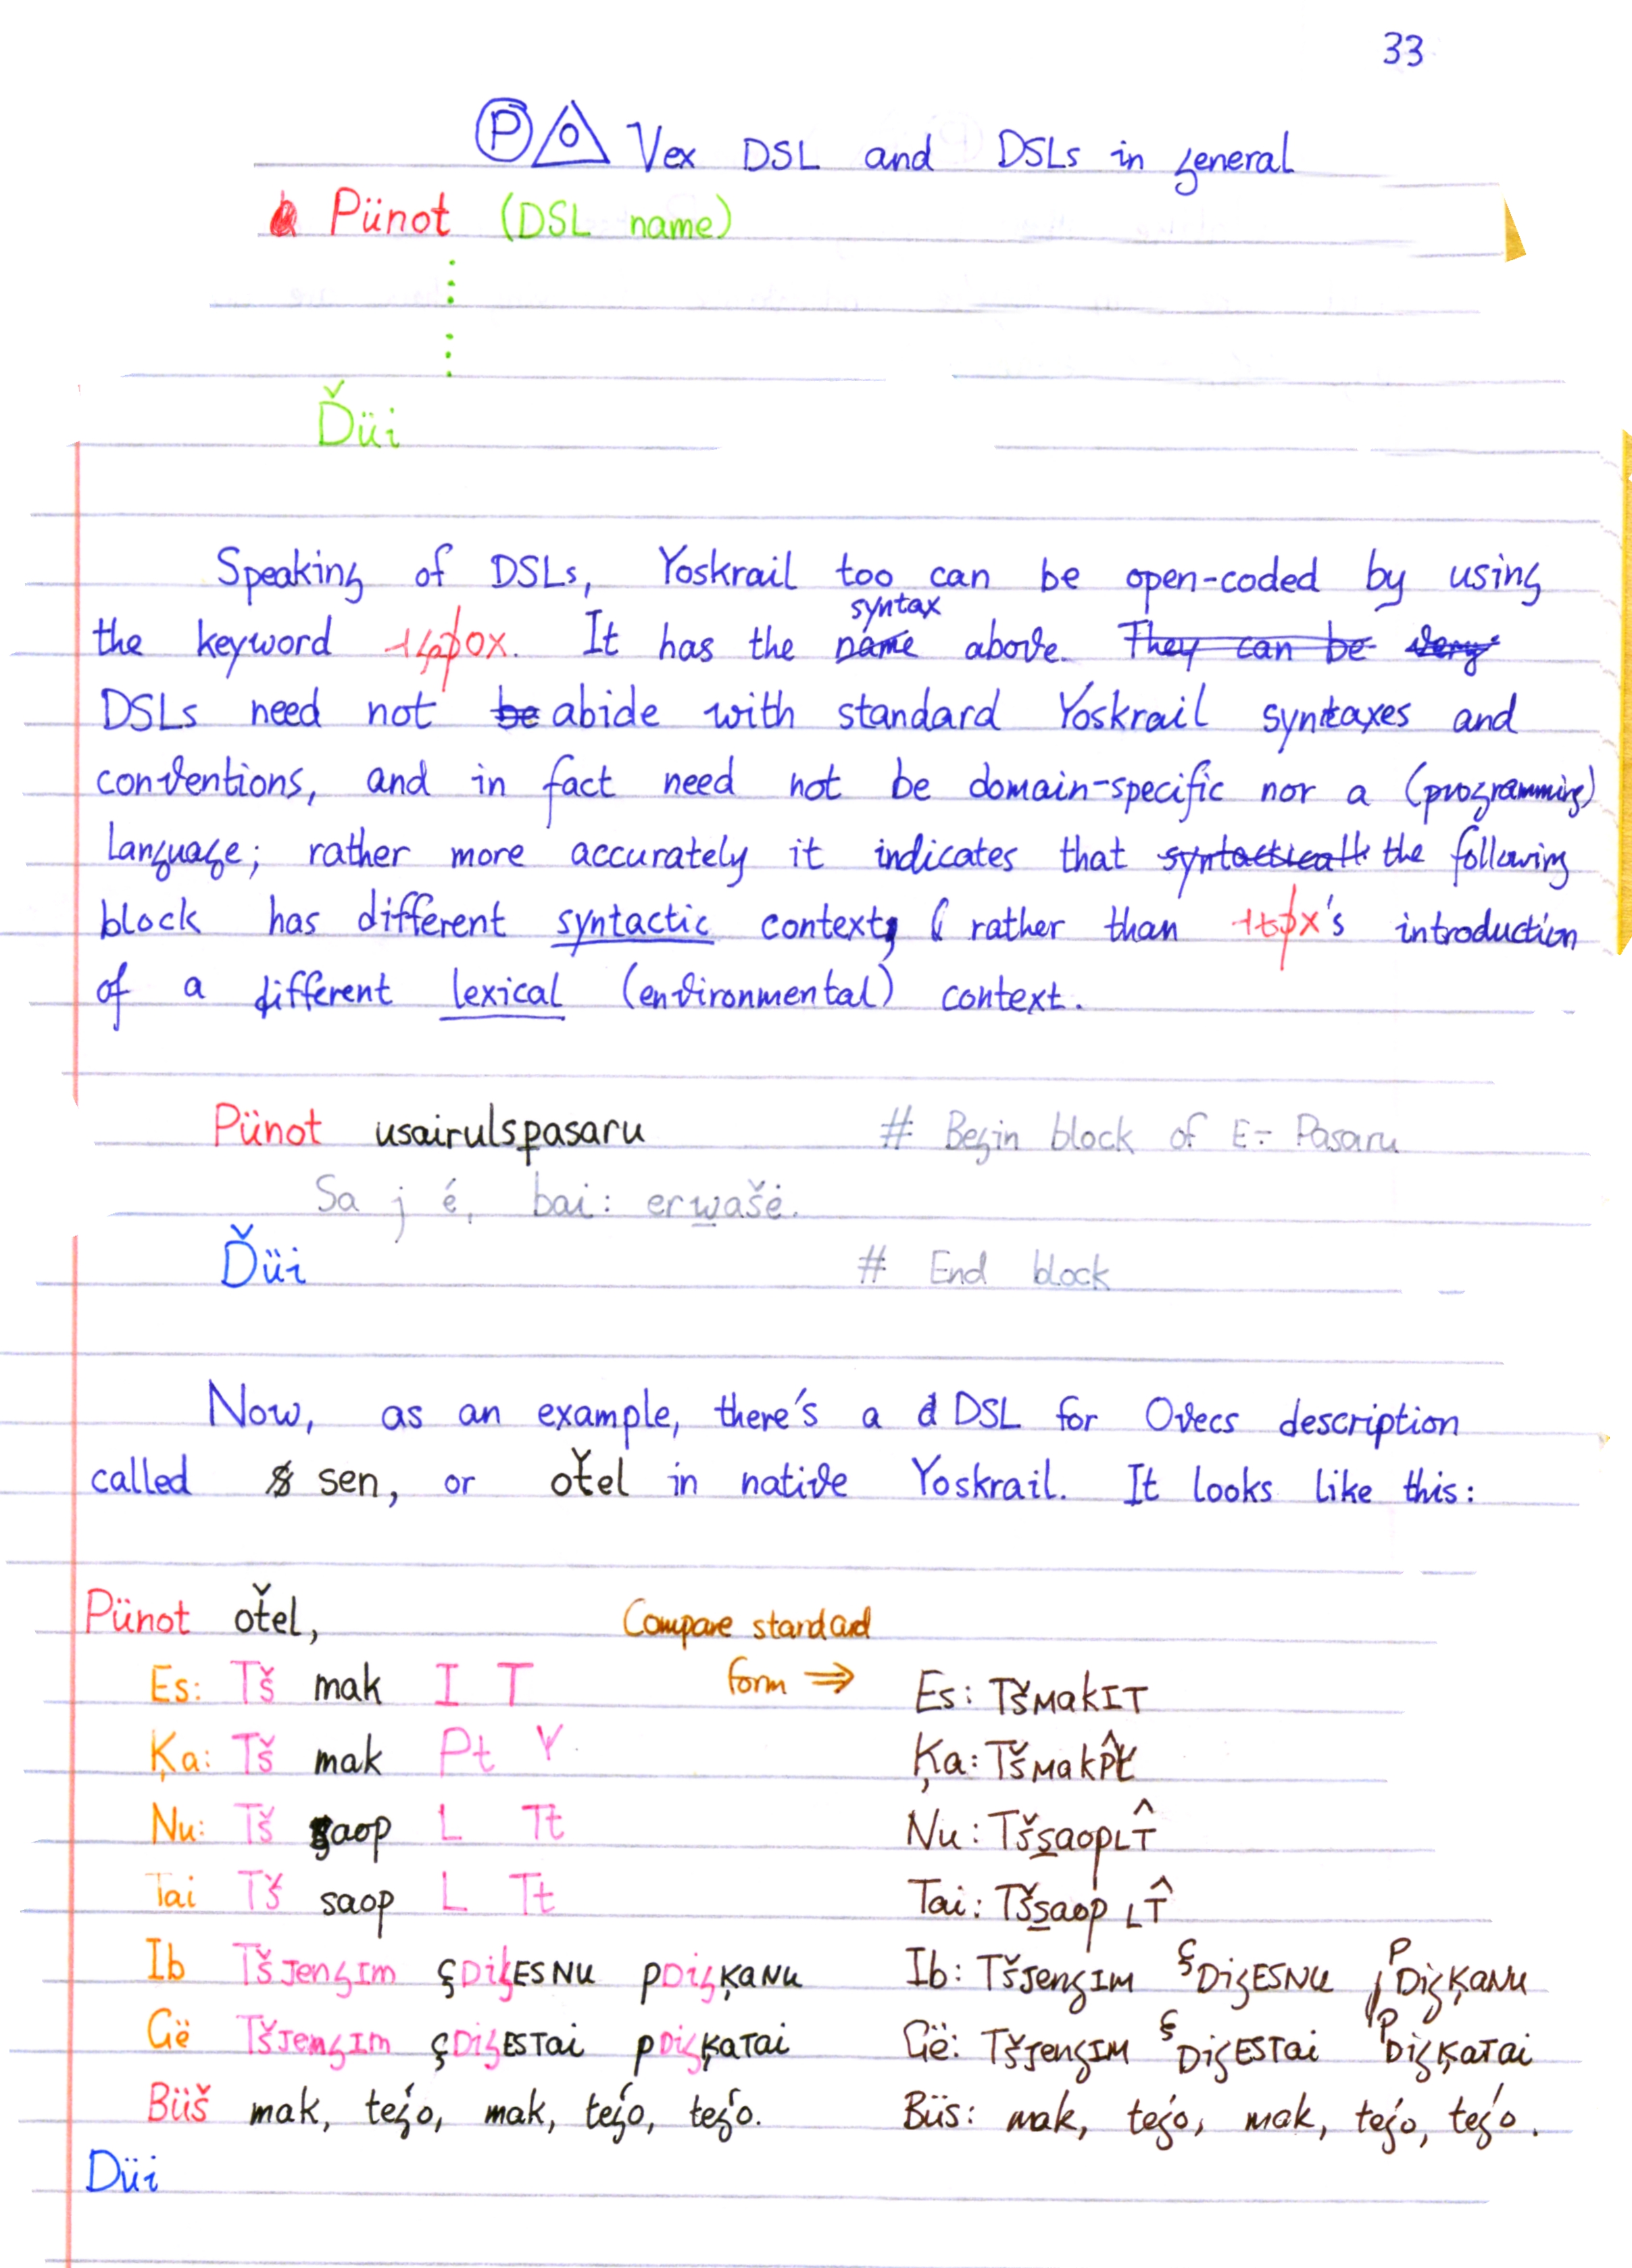 33
Ⓟ Vex DSL and DSLs in general
Pünot (DSL name)
Ďüi
Speaking of DSLs, Yoskrail too can be open-coded by using
syntax
the keyword . It has the name above. They can be very
DSLs need not be abide with standard Yoskrail syntaxes and
conventions, and in fact need not be domain-specific nor a (programming)
language; rather more accurately it indicates that syntacticall the following
block has different syntactic context, rather than 's introduction
of a different lexical (environmental) context.
Pünot usairulspasaru # Begin block of E÷ Pasaru
Sa j é, bai: erwašė.
Ďüi # End block
Now, as an example, there's a d DSL for Ovecs description
called sen, or oťel in native Yoskrail. It looks like this:
Pünot oťel, Compare standard
form ⇒
Es: Tš mak I T Es: TšMakIT
Ķa: Tš mak Pt Y Ķa:
Nu: Tš saop L Tt Nu: TšsaopLT̂
Tai Tš saop L Tt Tai: Tšsaop LT̂
Ib TšJenʒIm çDiʒESNu pDiʒĶaNu Ib: TšJenʒIM çDiʒESNu pDiʒĶaNu
Gë TšJenʒIm çDiʒESTai pDiʒĶaTai Gë: TšJenʒIM çDiʒESTai pDiʒĶaTai
Büš mak, teʒ́o, mak, teʒ́o, teʒ́o. Büs: mak, teʒ́o, mak, teʒ́o, teʒ́o.
Düi